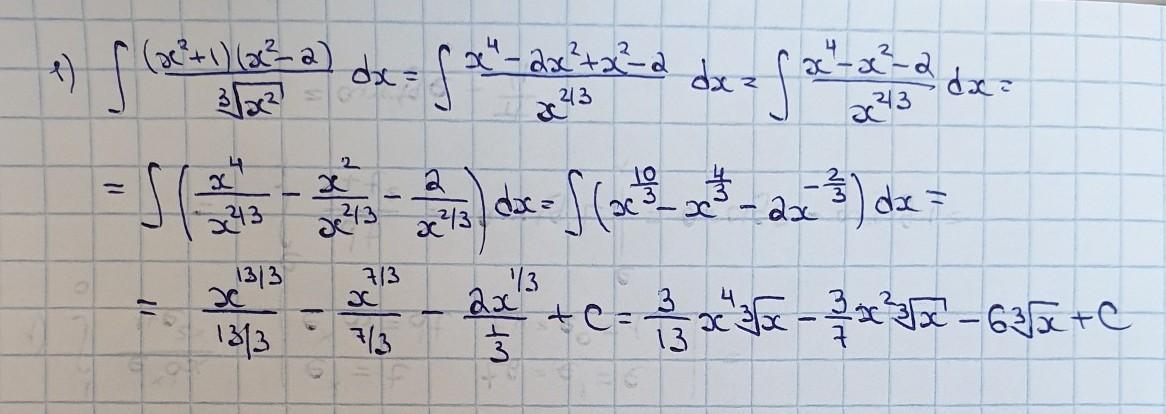 1) ∫ (x²+1)(x²-2) / ∛x² dx = ∫ x⁴ - 2x² + x² - 2 / x^2/3 dx = ∫ x⁴ - x² - 2 / x^2/3 dx =
= ∫ ( x⁴ / x^2/3 - x² / x^2/3 - 2 / x^2/3 ) dx = ∫ ( x^10/3 - x^4/3 - 2x^-2/3 ) dx =
= x^13/3 / 13/3 - x^7/3 / 7/3 - 2x^1/3 / 1/3 + C = 3/13 x⁴ ∛x - 3/7 x² ∛x - 6∛x + C